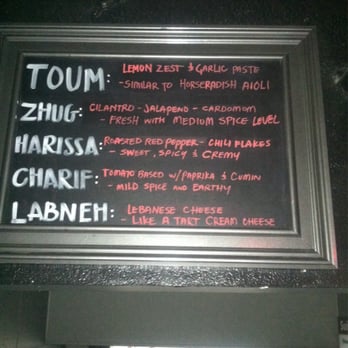 TOUM: LEMON ZEST & GARLIC PASTE
- SIMILAR TO HORSERADISH AIOLI
ZHUG: CILANTRO - JALAPENO - CARDOMOM
- FRESH WITH MEDIUM SPICE LEVEL
HARISSA: ROASTED RED PEPPER - CHILI FLAKES
- SWEET, SPICY & CREMY
CHARIF: TOMATO BASED W/ PAPRIKA & CUMIN
- MILD SPICE AND EARTHY
LABNEH: LEBANESE CHEESE
- LIKE A TART CREAM CHEESE